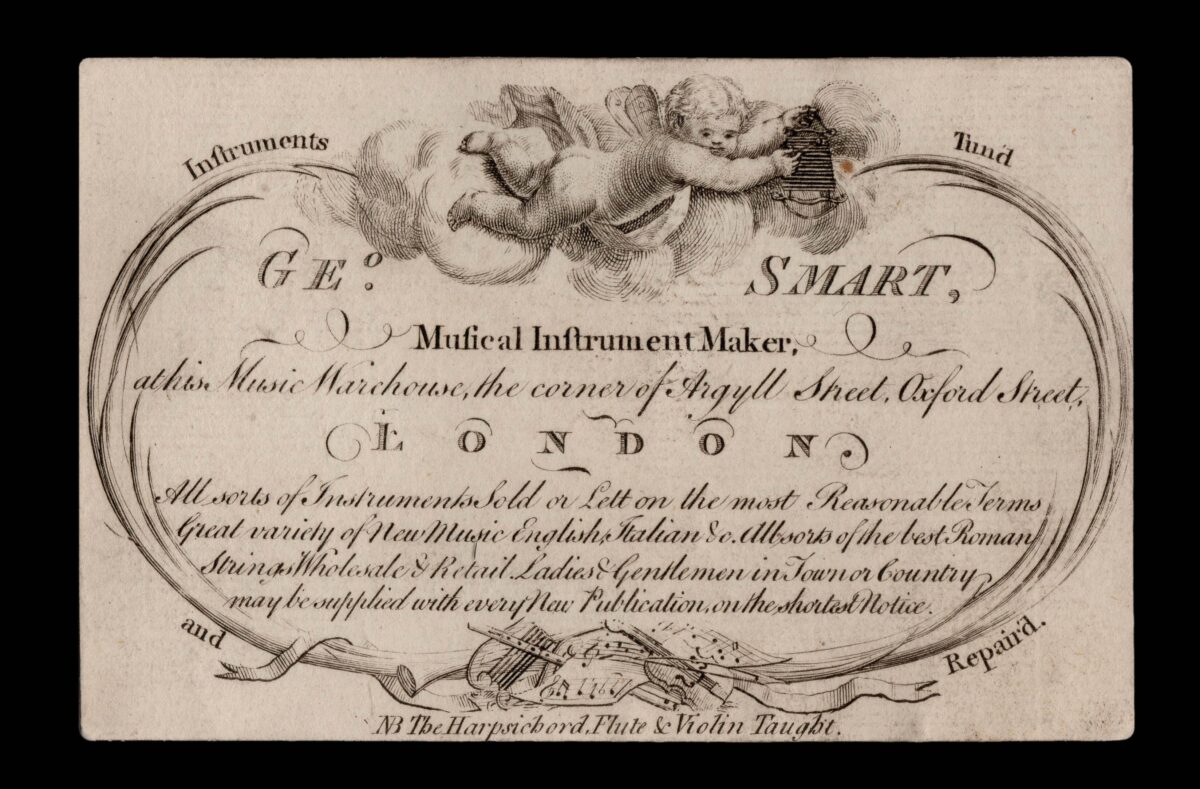 Inſtruments Tun'd
GEo. SMART,
Muſical Inſtrument Maker,
at his Music Warehouse, the corner of Argyll Street, Oxford Street,
LONDON
All sorts of Instruments Sold or Lett on the most Reasonable Terms
Great variety of New Music English, Italian &c. All sorts of the best Roman
Strings Wholesale & Retail. Ladies & Gentlemen in Town or Country
may be supplied with every New Publication, on the shortest Notice.
and Repair'd.
NB The Harpsichord, Flute & Violin Taught.